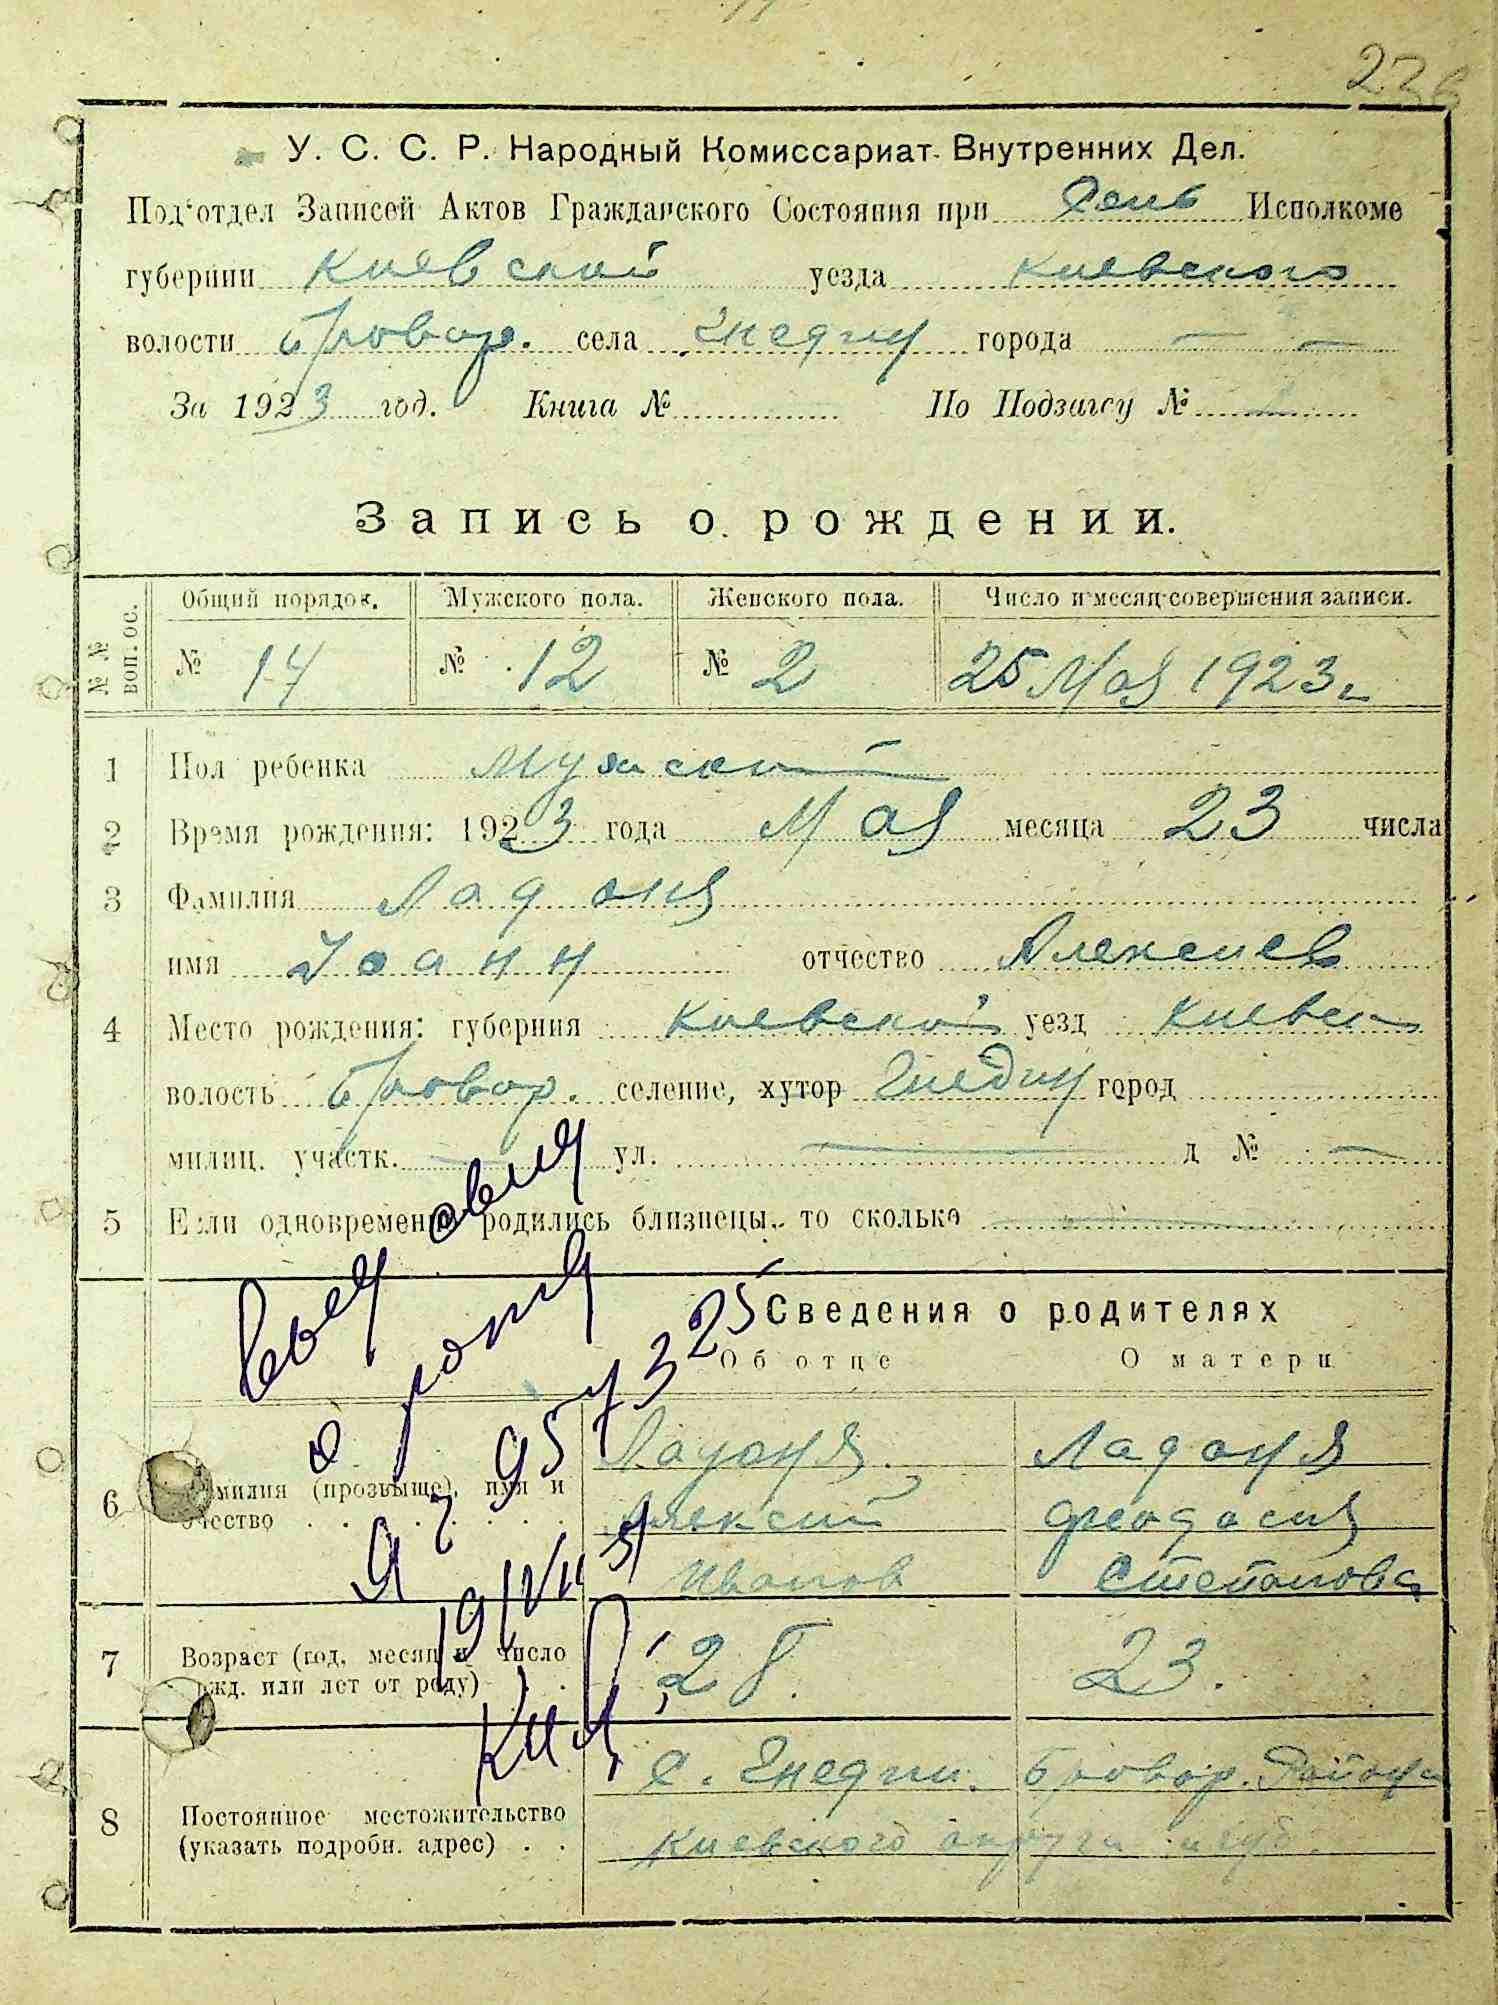 236
У. С. С. Р. Народный Комиссариат Внутренних Дел.
Под'отдел Записей Актов Гражданского Состояния при Сель Исполкоме
губернии Киевской уезда Киевского
волости Бровар. села Гнедин города — —
За 1923 год. Книга № По Подзагсу №
Запись о рождении.
№ № воп. ос. Общий порядок. Мужского пола. Женского пола. Число и месяц совершения записи.
№ 14 № 12 № 2 25 Мая 1923 г
1 Пол ребенка Мужской
2 Время рождения: 1923 года Мая месяца 23 числа
3 Фамилия Ладоня
имя Иоанн отчество Алексиев
4 Место рождения: губерния Киевской уезд Киевск
волость Бровар. селение, хутор Гнедин город
милиц. участк. — ул. — д № —
5 Если одновременно родились близнецы, то сколько —
Сведения о родителях
Об отце О матери
6 Фамилия (прозвище), имя и отчество . . . . . . . .
Ладоня Ладоня
Алексий Феодосия
Иванов Степанова
7 Возраст (год, месяц и число рожд. или лет от роду) . .
28. 23.
8 Постоянное местожительство (указать подробн. адрес) . .
с. Гнедин. Бровар. Района
Киевского округи и губ.
о рожд
957325